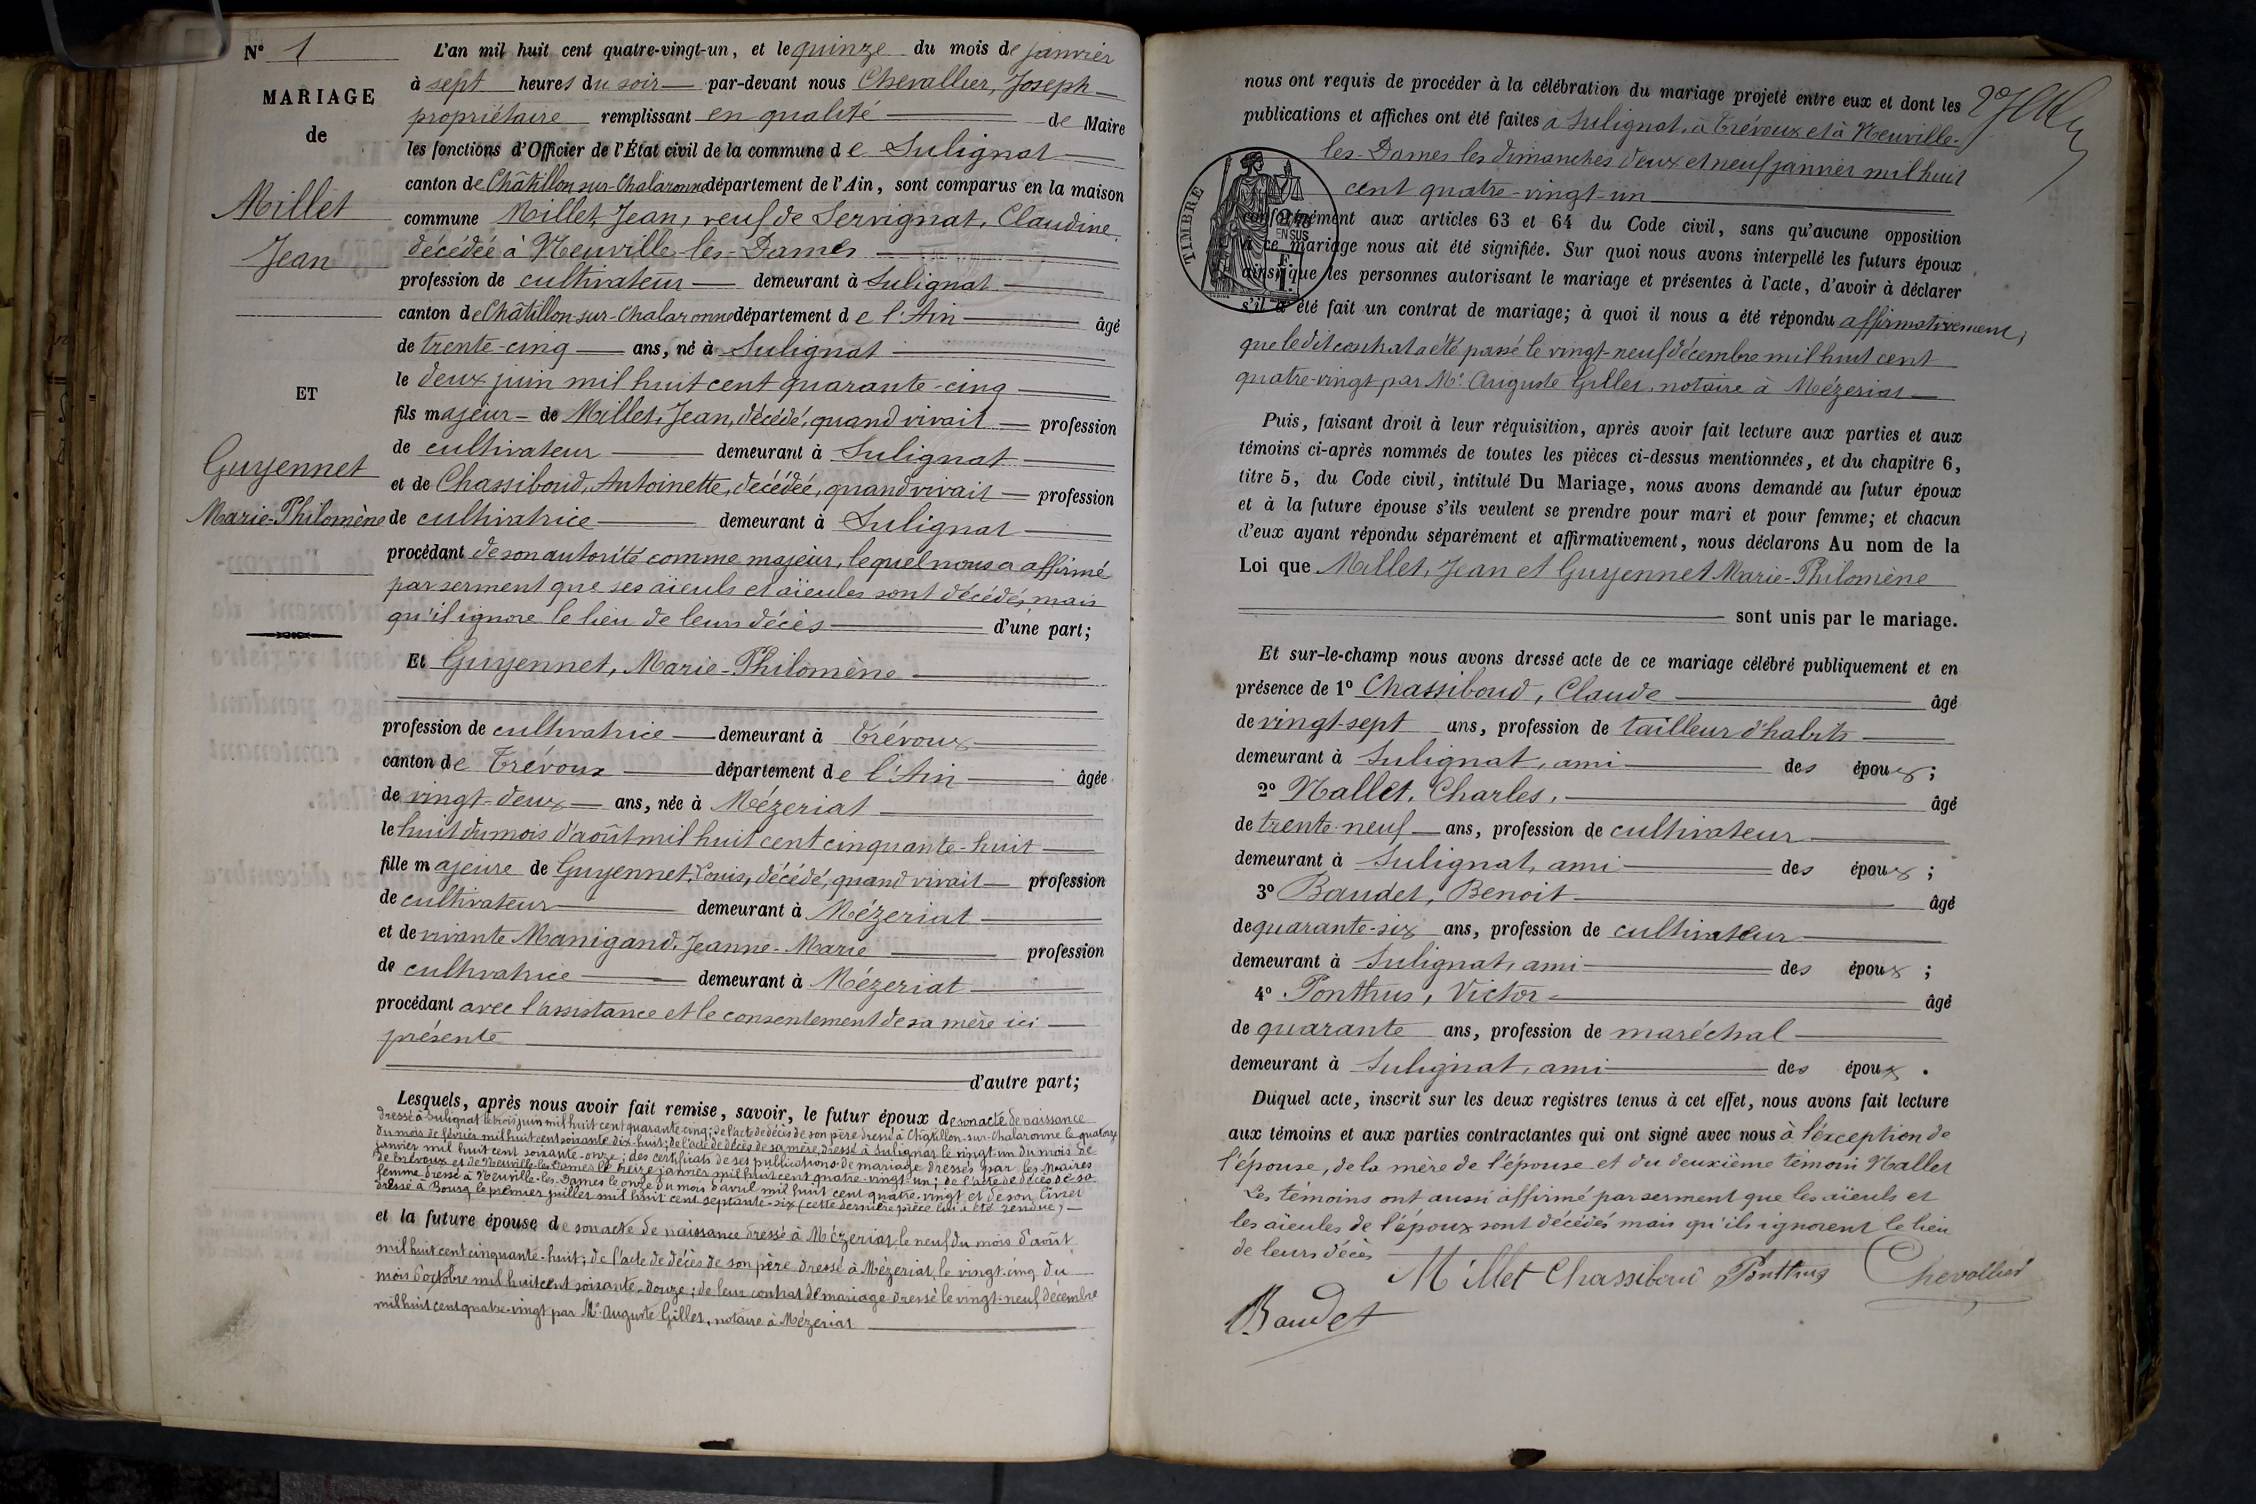 N° 1
MARIAGE
de
Millet
Jean
ET
Guyennet
Marie-Philomène
L'an mil huit cent quatre-vingt-un, et le quinze du mois de janvier
à sept heures du soir par-devant nous Chevallier, Joseph
propriétaire remplissant en qualité de Maire
les fonctions d'Officier de l'État civil de la commune de Sulignat
canton de Châtillon-sur-Chalaronne département de l'Ain, sont comparus en la maison
commune Millet, Jean, veuf de Servignat, Claudine
décédée à Neuville-les-Dames
profession de cultivateur demeurant à Sulignat
canton de Châtillon-sur-Chalaronne département de l'Ain âgé
de trente-cinq ans, né à Sulignat
le deux juin mil huit cent quarante-cinq
fils majeur de Millet, Jean, décédé, quand vivait profession
de cultivateur demeurant à Sulignat
et de Chassiboud, Antoinette, décédée, quand vivait profession
de cultivatrice demeurant à Sulignat
procédant de son autorité comme majeur, lequel nous a affirmé
par serment que ses aïeuls et aïeules sont décédés mais
qu'il ignore le lieu de leurs décès d'une part;
Et Guyennet, Marie-Philomène
profession de cultivatrice demeurant à Trévoux
canton de Trévoux département de l'Ain âgée
de vingt-deux ans, née à Mézeriat
le huit du mois d'août mil huit cent cinquante-huit
fille majeure de Guyennet, Louis, décédé, quand vivait profession
de cultivateur demeurant à Mézeriat
et de vivante Manigand, Jeanne-Marie profession
de cultivatrice demeurant à Mézeriat
procédant avec l'assistance et le consentement de sa mère ici
présente
d'autre part;
Lesquels, après nous avoir fait remise, savoir, le futur époux de son acte de naissance
dressé à Sulignat le trois juin mil huit cent quarante cinq; de l'acte de décès de son père dressé à Châtillon-sur-Chalaronne le quatorze
du mois de février mil huit cent soixante-dix-huit; de l'acte de décès de sa mère, dressé à Sulignat le vingt-un du mois de
janvier mil huit cent soixante-onze; des certificats de ses publications de mariage dressés par les Maires
de Trévoux et de Neuville-les-Dames le treize janvier mil huit cent quatre-vingt-un; de l'acte de décès de sa
femme dressé à Neuville-les-Dames le onze du mois d'avril mil huit cent quatre-vingt et de son livret
dressé à Bourg le premier juillet mil huit cent septante-six (cette dernière pièce lui a été rendue)
et la future épouse de son acte de naissance dressé à Mézeriat le neuf du mois d'août
mil huit cent cinquante-huit; de l'acte de décès de son père dressé à Mézeriat, le vingt-cinq du
mois d'octobre mil huit cent soixante-douze; de leur contrat de mariage dressé le vingt-neuf décembre
mil huit cent quatre-vingt par Me Auguste Gillet, notaire à Mézeriat
nous ont requis de procéder à la célébration du mariage projeté entre eux et dont les
publications et affiches ont été faites à Sulignat, à Trévoux et à Neuville-
les-Dames les dimanches deux et neuf janvier mil huit
cent quatre-vingt-un
TIMBRE
2/10 EN SUS
conformément aux articles 63 et 64 du Code civil, sans qu'aucune opposition
à ce mariage nous ait été signifiée. Sur quoi nous avons interpellé les futurs époux
ainsi que les personnes autorisant le mariage et présentes à l'acte, d'avoir à déclarer
s'il a été fait un contrat de mariage; à quoi il nous a été répondu affirmativement,
que ledit contrat a été passé le vingt-neuf décembre mil huit cent
quatre-vingt par Me Auguste Gillet, notaire à Mézeriat
Puis, faisant droit à leur réquisition, après avoir fait lecture aux parties et aux
témoins ci-après nommés de toutes les pièces ci-dessus mentionnées, et du chapitre 6,
titre 5, du Code civil, intitulé Du Mariage, nous avons demandé au futur époux
et à la future épouse s'ils veulent se prendre pour mari et pour femme; et chacun
d'eux ayant répondu séparément et affirmativement, nous déclarons Au nom de la
Loi que Millet, Jean et Guyennet Marie-Philomène
sont unis par le mariage.
Et sur-le-champ nous avons dressé acte de ce mariage célébré publiquement et en
présence de 1° Chassiboud, Claude âgé
de vingt-sept ans, profession de tailleur d'habits
demeurant à Sulignat, ami des époux;
2° Nallet, Charles, âgé
de trente-neuf ans, profession de cultivateur
demeurant à Sulignat, ami des époux;
3° Baudet, Benoit âgé
de quarante-six ans, profession de cultivateur
demeurant à Sulignat, ami des époux;
4° Ponthus, Victor âgé
de quarante ans, profession de maréchal
demeurant à Sulignat, ami des époux.
Duquel acte, inscrit sur les deux registres tenus à cet effet, nous avons fait lecture
aux témoins et aux parties contractantes qui ont signé avec nous à l'exception de
l'épouse, de la mère de l'épouse et du deuxième témoin Nallet
Les témoins ont aussi affirmé par serment que les aïeuls et
les aïeules de l'époux sont décédés mais qu'ils ignorent le lieu
de leurs décès
Millet Chassiboud Ponthus Chevallier
Baudet